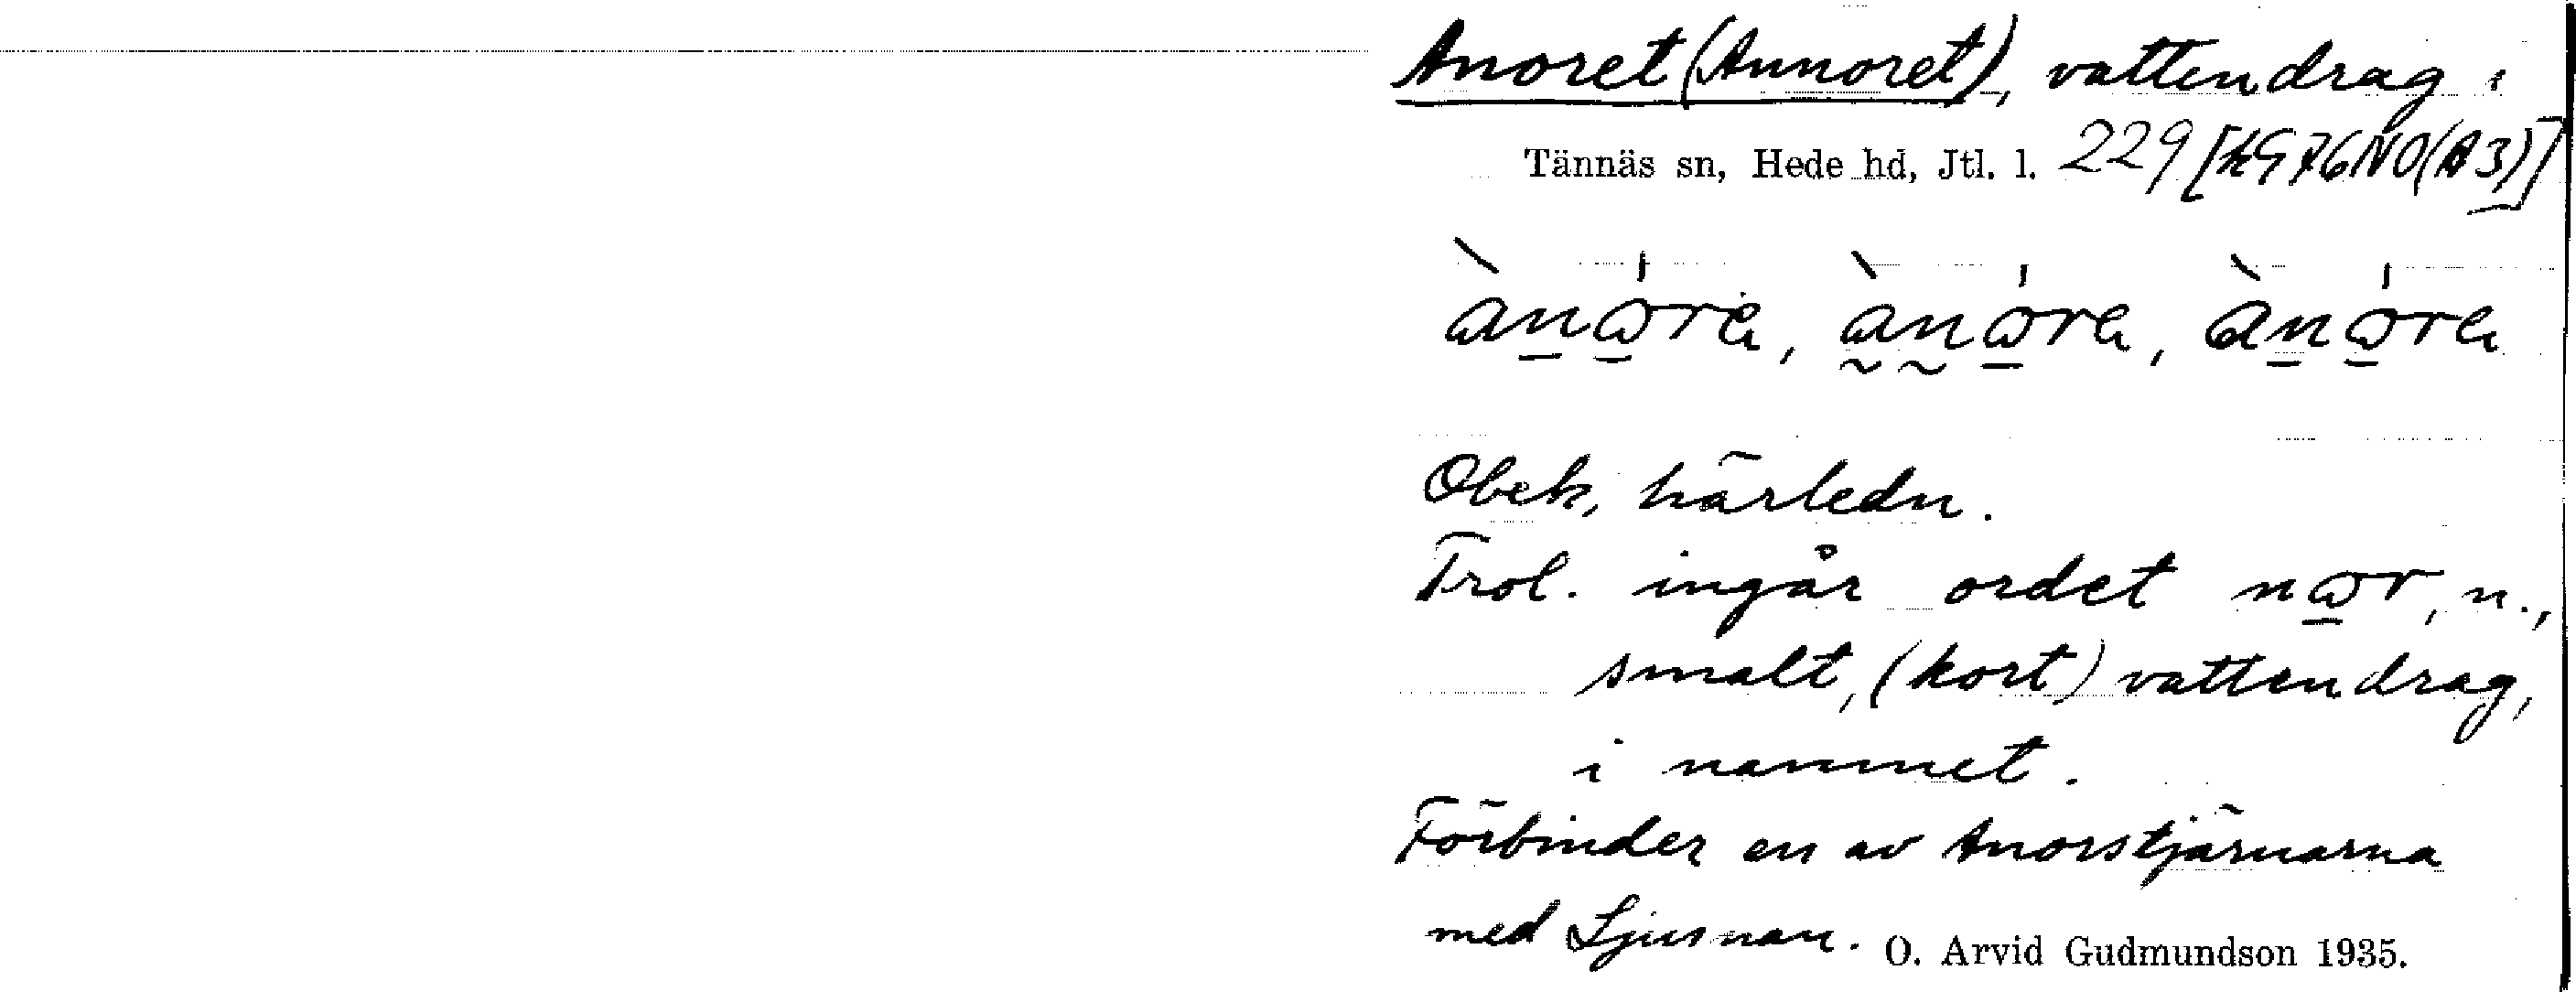 Anoret (Annoret), vattendrag i
Tännäs sn, Hede hd, Jtl. l. 229 [kG76NO(A3)]
Obek, härledn.
Trol. ingår ordet nωr, n.,
smalt, (kort) vattendrag,
i namnet.
Förbinder en av Anorstjärnarna
med Ljusnan. O. Arvid Gudmundson 1935.